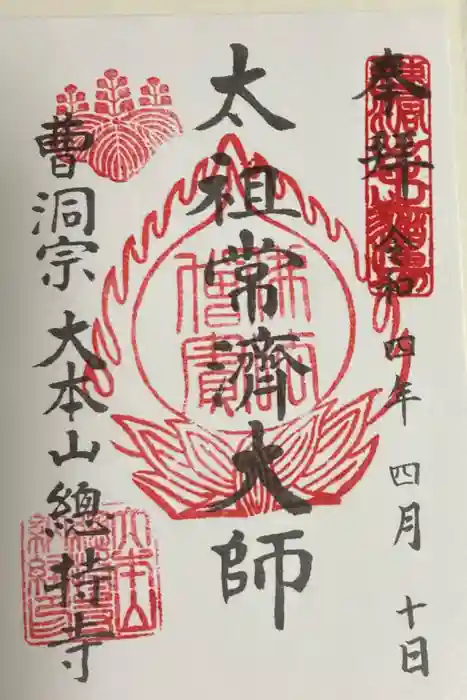 奉拝 令和四年四月十日
太祖常濟大師
曹洞宗 大本山總持寺